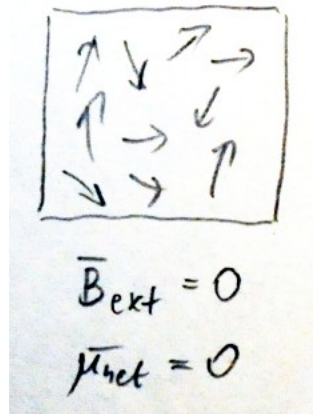 B̅ext = 0
μ̅net = 0